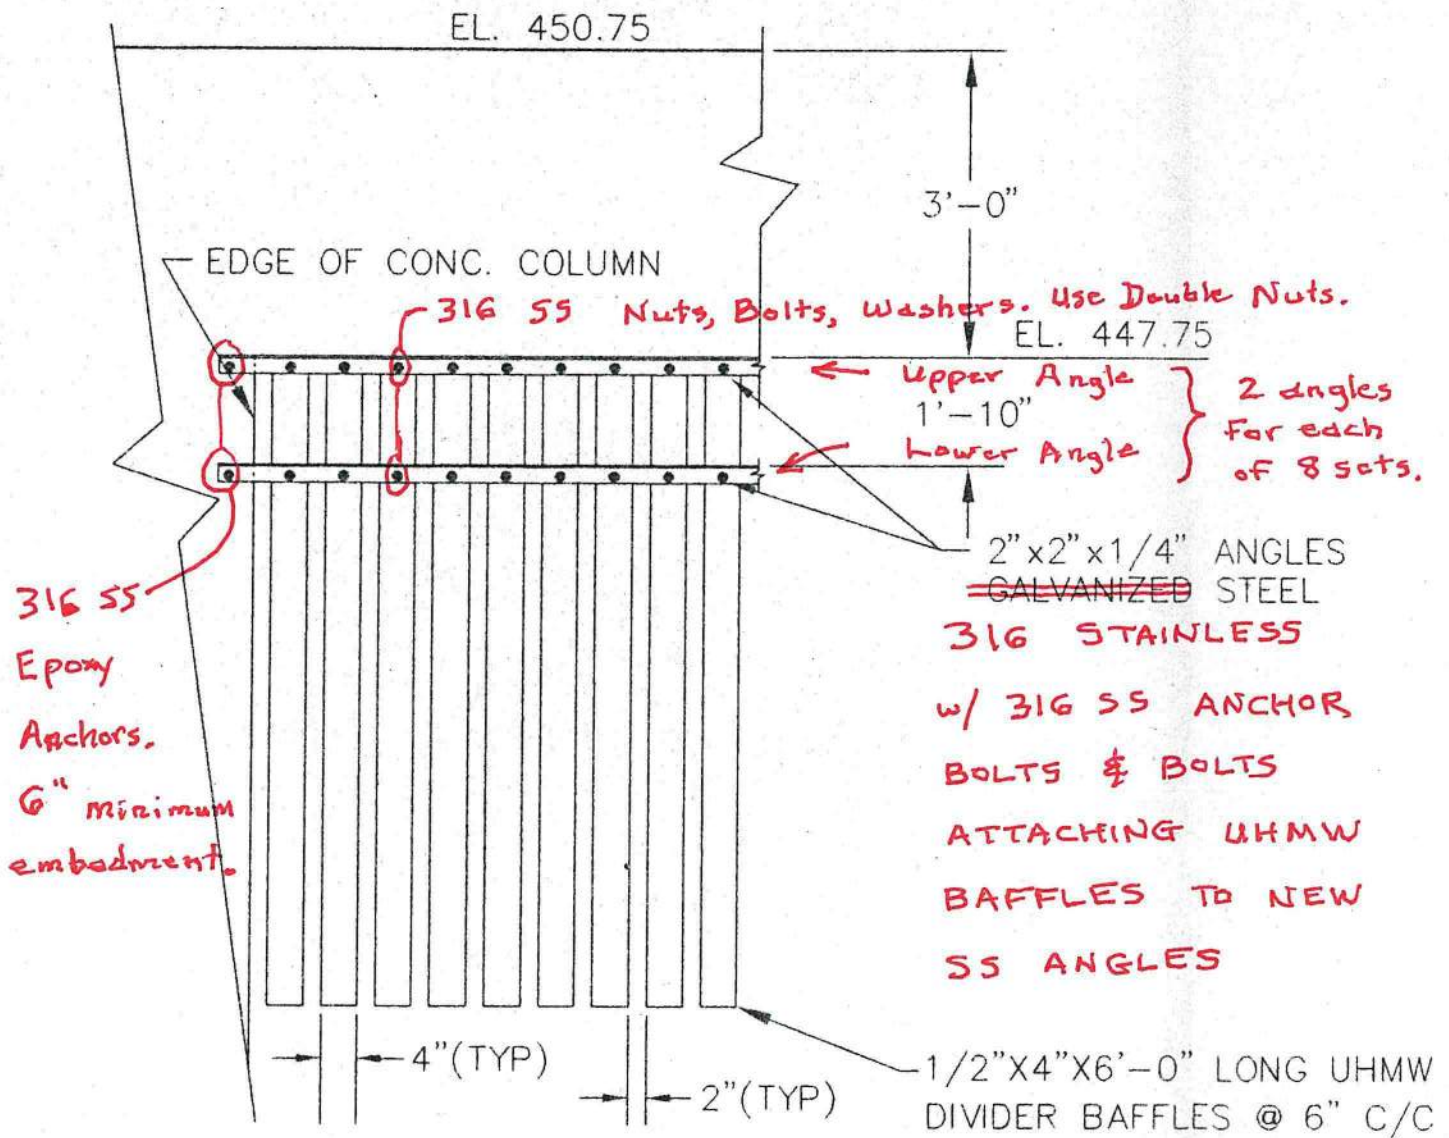 EL. 450.75
3'-0"
EDGE OF CONC. COLUMN
316 SS Nuts, Bolts, Washers. Use Double Nuts.
EL. 447.75
Upper Angle
1'-10"
Lower Angle
2 angles
For each
of 8 sets.
2"x2"x1/4" ANGLES
GALVANIZED STEEL
316 STAINLESS
w/ 316 SS ANCHOR
BOLTS & BOLTS
ATTACHING UHMW
BAFFLES TO NEW
SS ANGLES
316 SS
Epoxy
Anchors.
6" minimum
embedment.
4"(TYP)
2"(TYP)
1/2"X4"X6'-0" LONG UHMW
DIVIDER BAFFLES @ 6" C/C